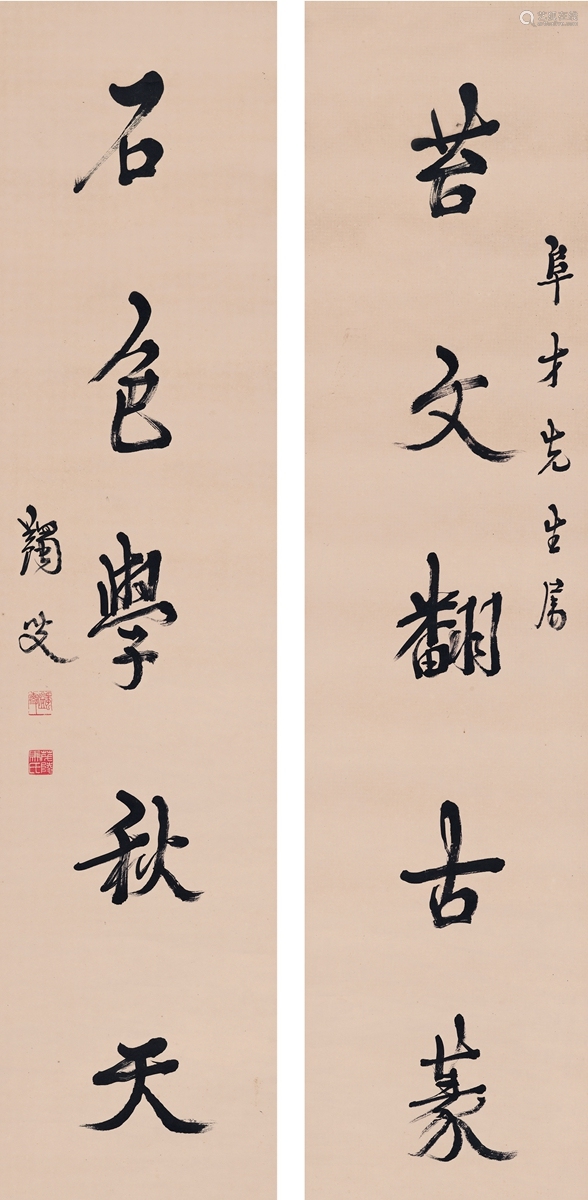 阜才先生属
苔文翻古篆
石色學秋天
蠲叟